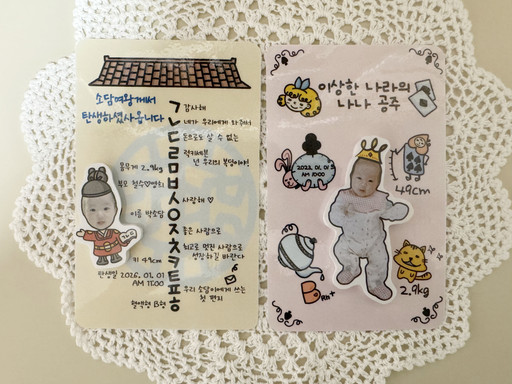 소담여왕께서
탄생하셨사옵니다
몸무게 2.9kg
이름 박소담
키 49cm
탄생일 2026. 01. 01
AM 11:00
혈액형 B형
ㄱ 감사해
ㄴ 네가 우리에게 와주어
ㄷ 돈으로도 살 수 없는
ㄹ 럭키세븐
ㅁ
ㅂ 넌 우리의 복덩이야!
ㅅ 사랑해 ♡
ㅇ
ㅈ 좋은 사람으로
ㅊ 최고로 멋진 사람으로
ㅋ
ㅌ
ㅍ
ㅎ
성장하길 바란다
우리 소담이에게 쓰는
첫 편지
이상한 나라의
나나 공주
AM 11:00
49cm
B RH+
2.9kg